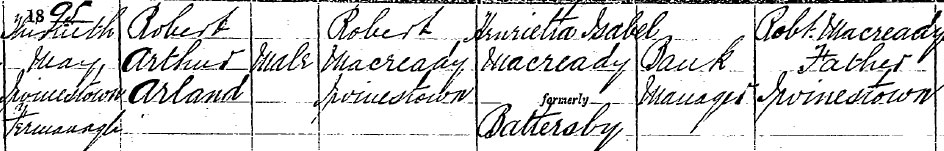 1895 Robert Robert Henrietta Isabel Robt. Macready
May Arthur Male Macready Macready Bank Father
Irvinestown Arland Irvinestown formerly Manager Irvinestown
Fermanagh Battersby